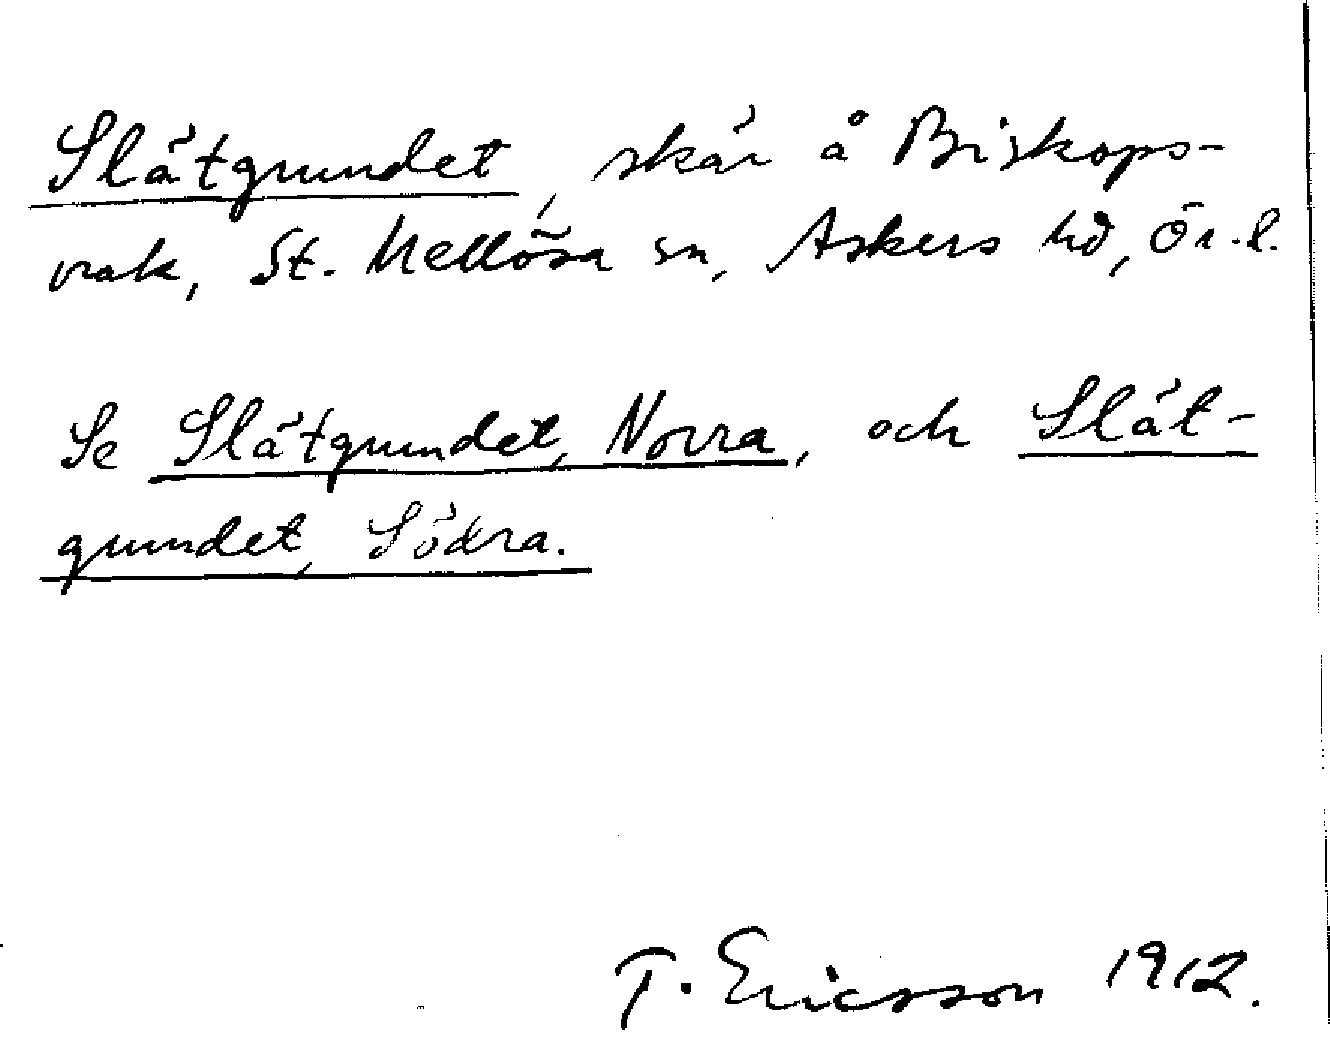 Slätgrundet, skär å Biskops-
vrak, St. Mellösa sn, Askers hd, Ör. l.
Se Slätgrundet, Norra, och Slät-
grundet, Södra.
T. Ericsson 1912.